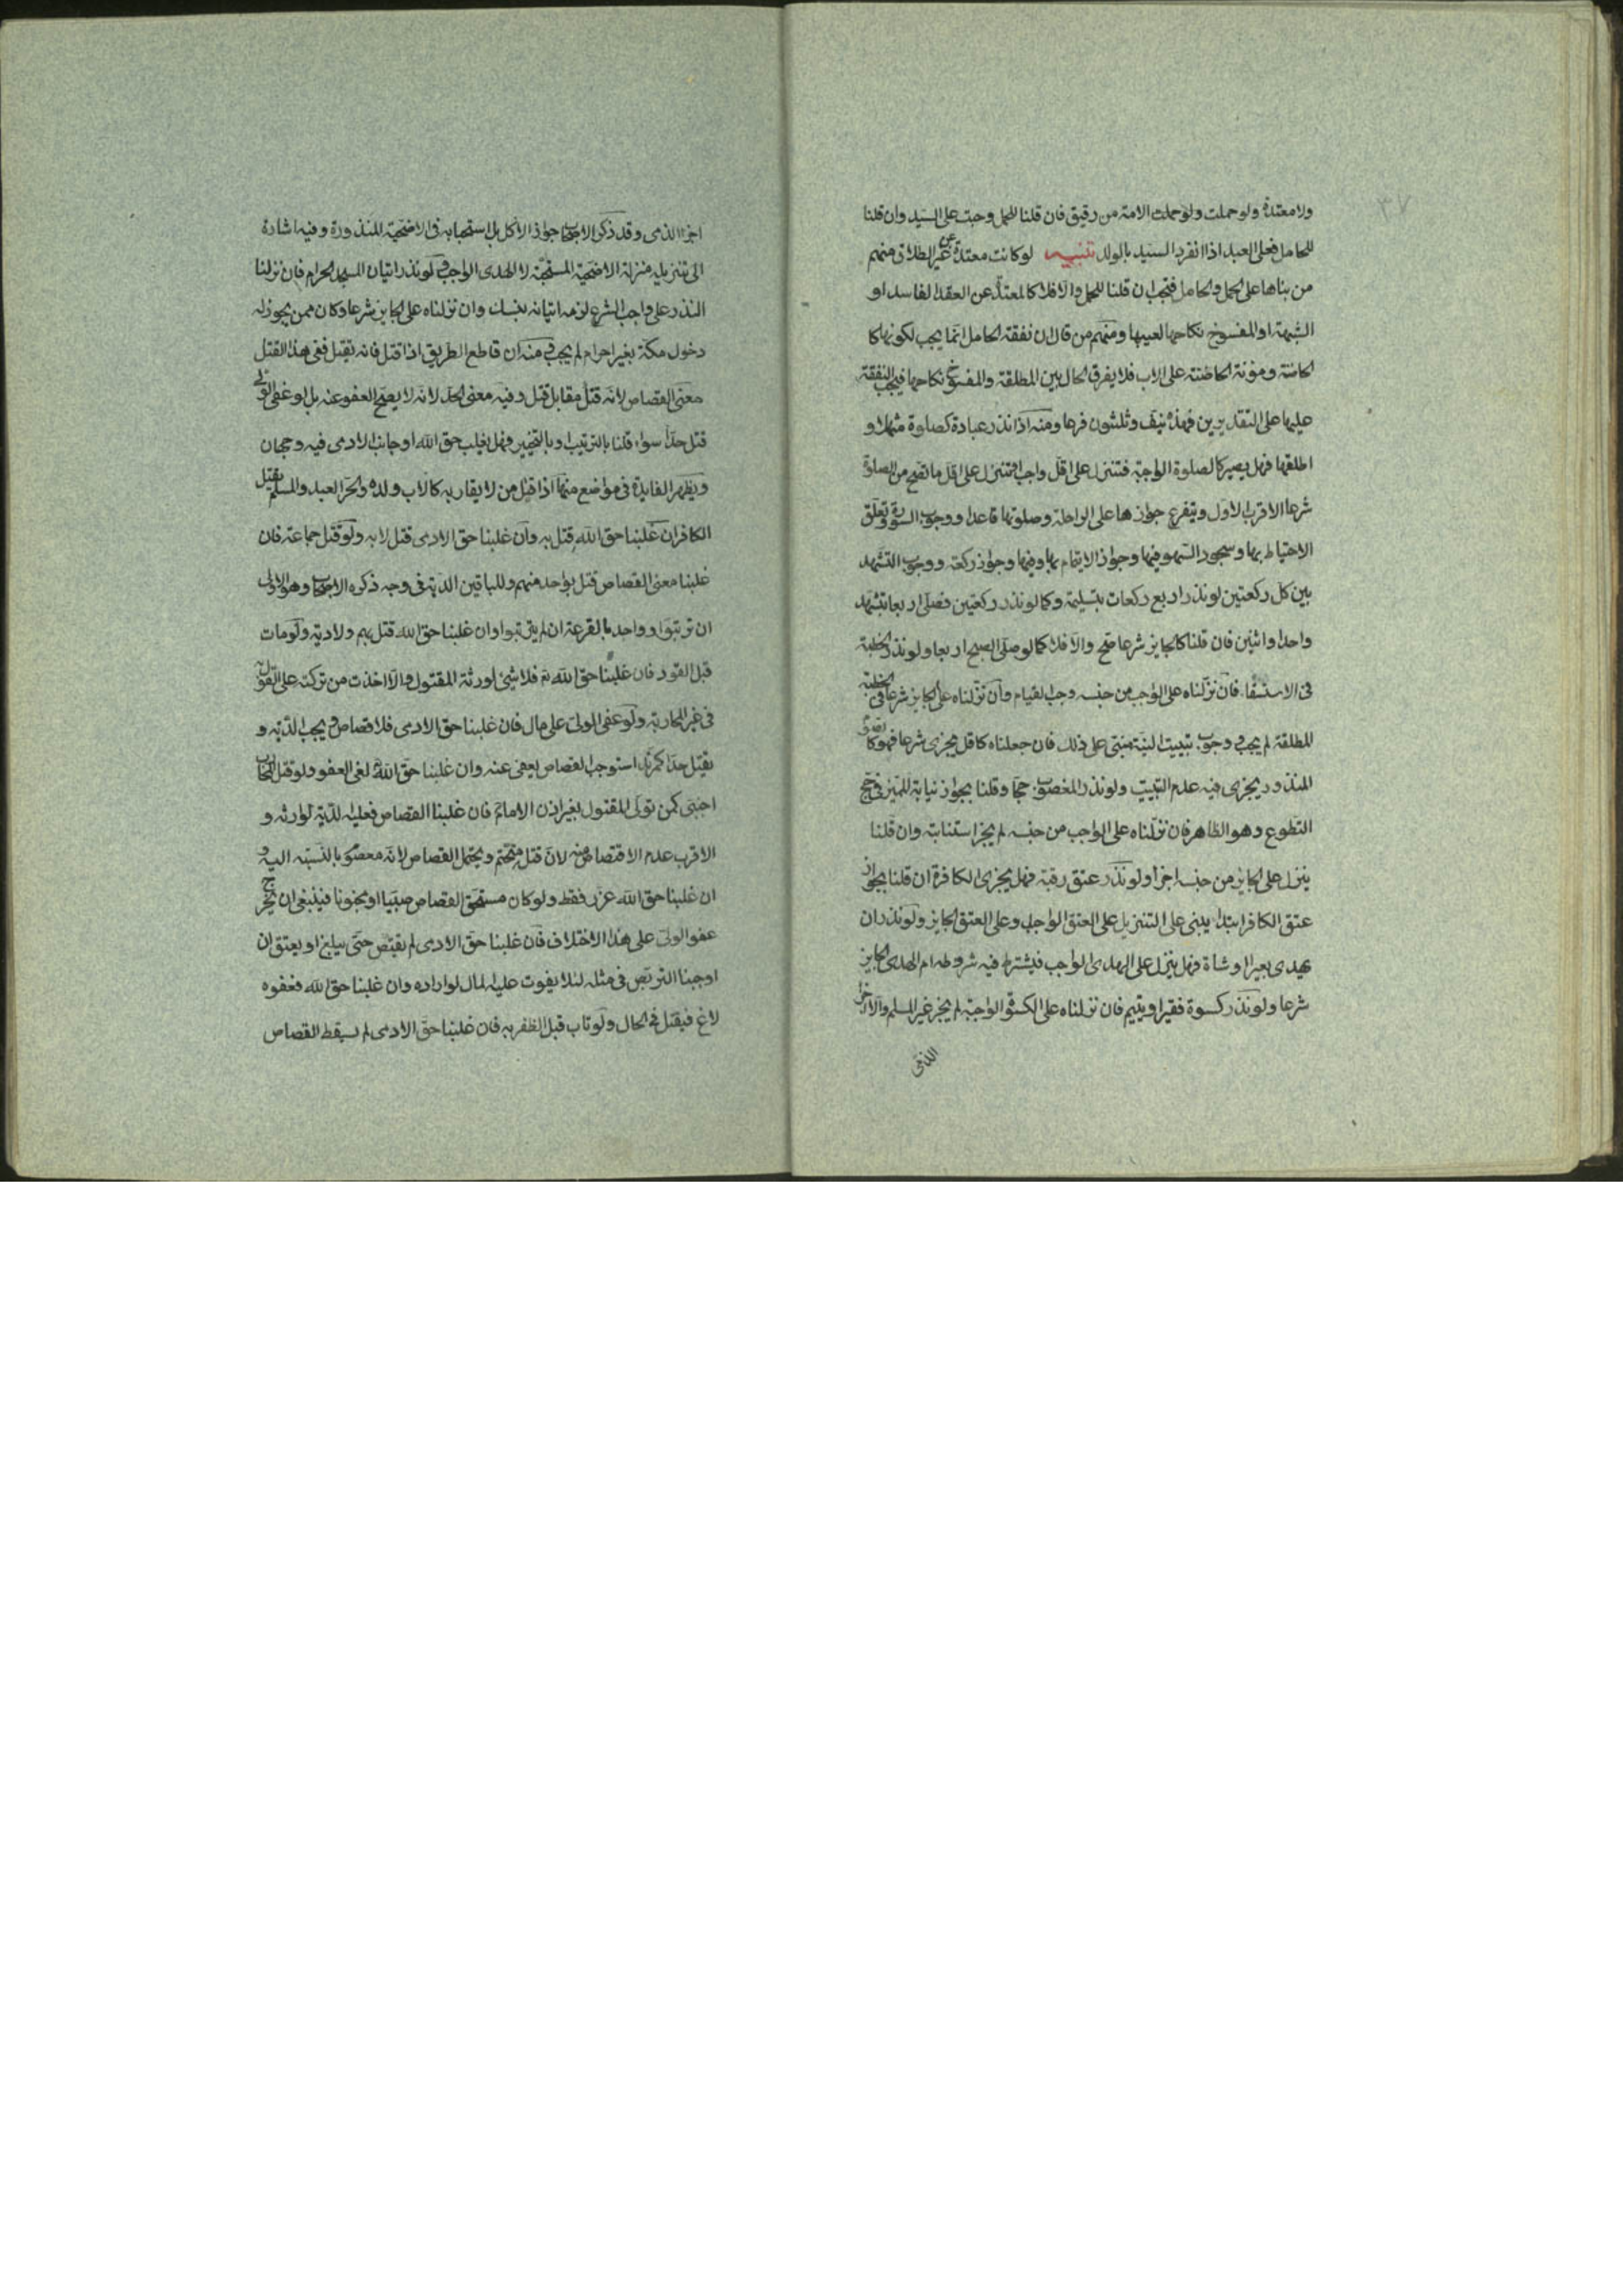 ٣٧
ولا معتدة ولو حملت ولو حملت الامة من رقيق فان قلنا للحمل وجبت على السيد وان قلنا
للحامل فعلى العبد اذا انفرد السيد بالولد تنبيه لو كانت معتدة عن غير الطلاق فمنهم
من بناها على الحمل والحامل فتجب ان قلنا للحمل والا فلا كالمعتدة عن العقد الفاسد او
الشبهة او المفسوخ نكاحها لعيبها ومنهم من قال ان نفقة الحامل انما يجب لكونها كا
لحاضنة ومؤنة الحاضنة على الاب فلا يفرق الحال بين المطلقة والمفسوخ نكاحها فيجب النفقة
عليها على التقديرين فهذه نيف وثلثون فرعا ومنه اذا نذر عبادة كصلوة مثلا و
اطلقها فهل يصير كالصلوة الواجبة فتنزل على اقل واجب او تنزل على اقل ما تصح من الصلوة
شرعا الاقرب الاول ويتفرع جوازها على الراحلة وصلوتها قاعدا ووجوب السورة وتعلق
الاحتياط بها وسجود السهو فيها وجواز الايتمام بها وفيها وجواز ركعة ووجوب التشهد
بين كل ركعتين لو نذر اربع ركعات بتسليمة وكما لو نذر ركعتين فصلى اربعا بتشهد
واحد او اثنين فان قلنا كالجايز شرعا صح والا فلا كما لو صلى الصبح اربعا ولو نذر الخطبة
في الاستسقا فان نزلناه على الواجب من جنسه وجب القيام وان نزلناه على الجايز شرعا ففي الخطبة
المطلقة لم يجب وفي وجوب تبييت النية مبنى على ذلك فان جعلناه كاقل مجزى شرعا فهو كا
المنذور يجزى فيه عدم التبييت ولو نذر المعضوب حجا وقلنا بجواز نيابة المميز في حج
التطوع وهو الظاهر فان نزلناه على الواجب من جنسه لم يجز استنابته وان قلنا
ينزل على الجايز من جنسه اجزا ولو نذر عتق رقبة فهل يجزى الكافرة ان قلنا بجواز
عتق الكافر ابتداء يبنى على التنزيل على العتق الواجب وعلى العتق الجايز ولو نذر ان
يهدى بعيرا او شاة فهل ينزل على الهدى الواجب فيشترط فيه شروطه ام الهدى الجايز
شرعا ولو نذر كسوة فقير او يتيم فان نزلناه على الكسوة الواجبة لم يجز غير المسلم والا اجزا
الذمى
اجزا الذمى وقد ذكر الاصحاب جواز الاكل بل استحبابه في الاضحية المنذورة وفيه اشارة
الى تنزيله منزلة الاضحية المستحبة لا الهدى الواجب ولو نذر اتيان المسجد الحرام فان نزلنا
النذر على واجب الشرع لزمه اتيانه بنسك وان نزلناه على الجايز شرعا وكان ممن يجوز له
دخول مكة بغير احرام لم يجب ومنه ان قاطع الطريق اذا قتل فانه يقتل ففى هذا القتل
معنى القصاص لانه قتل مقابل قتل وفيه معنى الحد لانه لا يصح العفو عنه بل لو عفى الولى
قتل حدا سواء قلنا بالترتيب او بالتخيير فهل يغلب حق الله او جانب الادمى فيه وجهان
ويظهر الفايدة في مواضع منها اذا قتل من لا يقاد به كالاب ولده والحر العبد والمسلم يقتل
الكافر ان غلبنا حق الله قتل به وان غلبنا حق الادمى قتل لا به ولو قتل جماعة فان
غلبنا معنى القصاص قتل بواحد منهم وللباقين الدية في وجه ذكره الاصحاب وهو الاولى
ان ترتبوا وواحد بالقرعة ان لم يترتبوا وان غلبنا حق الله قتل بهم ولا دية ولو مات
قبل القود فان غلبنا حق الله فلا شئ لورثة المقتول والا اخذت من تركته على القول
في غير المحاربة ولو عفى الولى على مال فان غلبنا حق الادمى فلا قصاص ويجب الدية و
يقتل حدا كمرتد استوجب القصاص يعفى عنه وان غلبنا حق الله لغى العفو ولو قتل المحارب
اجنبى كمن تولى للمقتول بغير اذن الامام فان غلبنا القصاص فعليه الدية لوارثه و
الاقرب عدم الاقتصاص منه لان قتله متحتم ويحتمل القصاص لانه معصوم بالنسبة اليه و
ان غلبنا حق الله عزر فقط ولو كان مستحق القصاص صبيا او مجنونا فينبغي ان يخرج
عفو الولى على هذا الاختلاف فان غلبنا حق الادمى لم يقتص حتى يبلغ او يعتق ان
اوجبنا التربص في مثله لئلا يفوت عليه المال لو اراده وان غلبنا حق الله فعفوه
لاغ فيقتل في الحال ولو تاب قبل الظفر به فان غلبنا حق الادمى لم يسقط القصاص